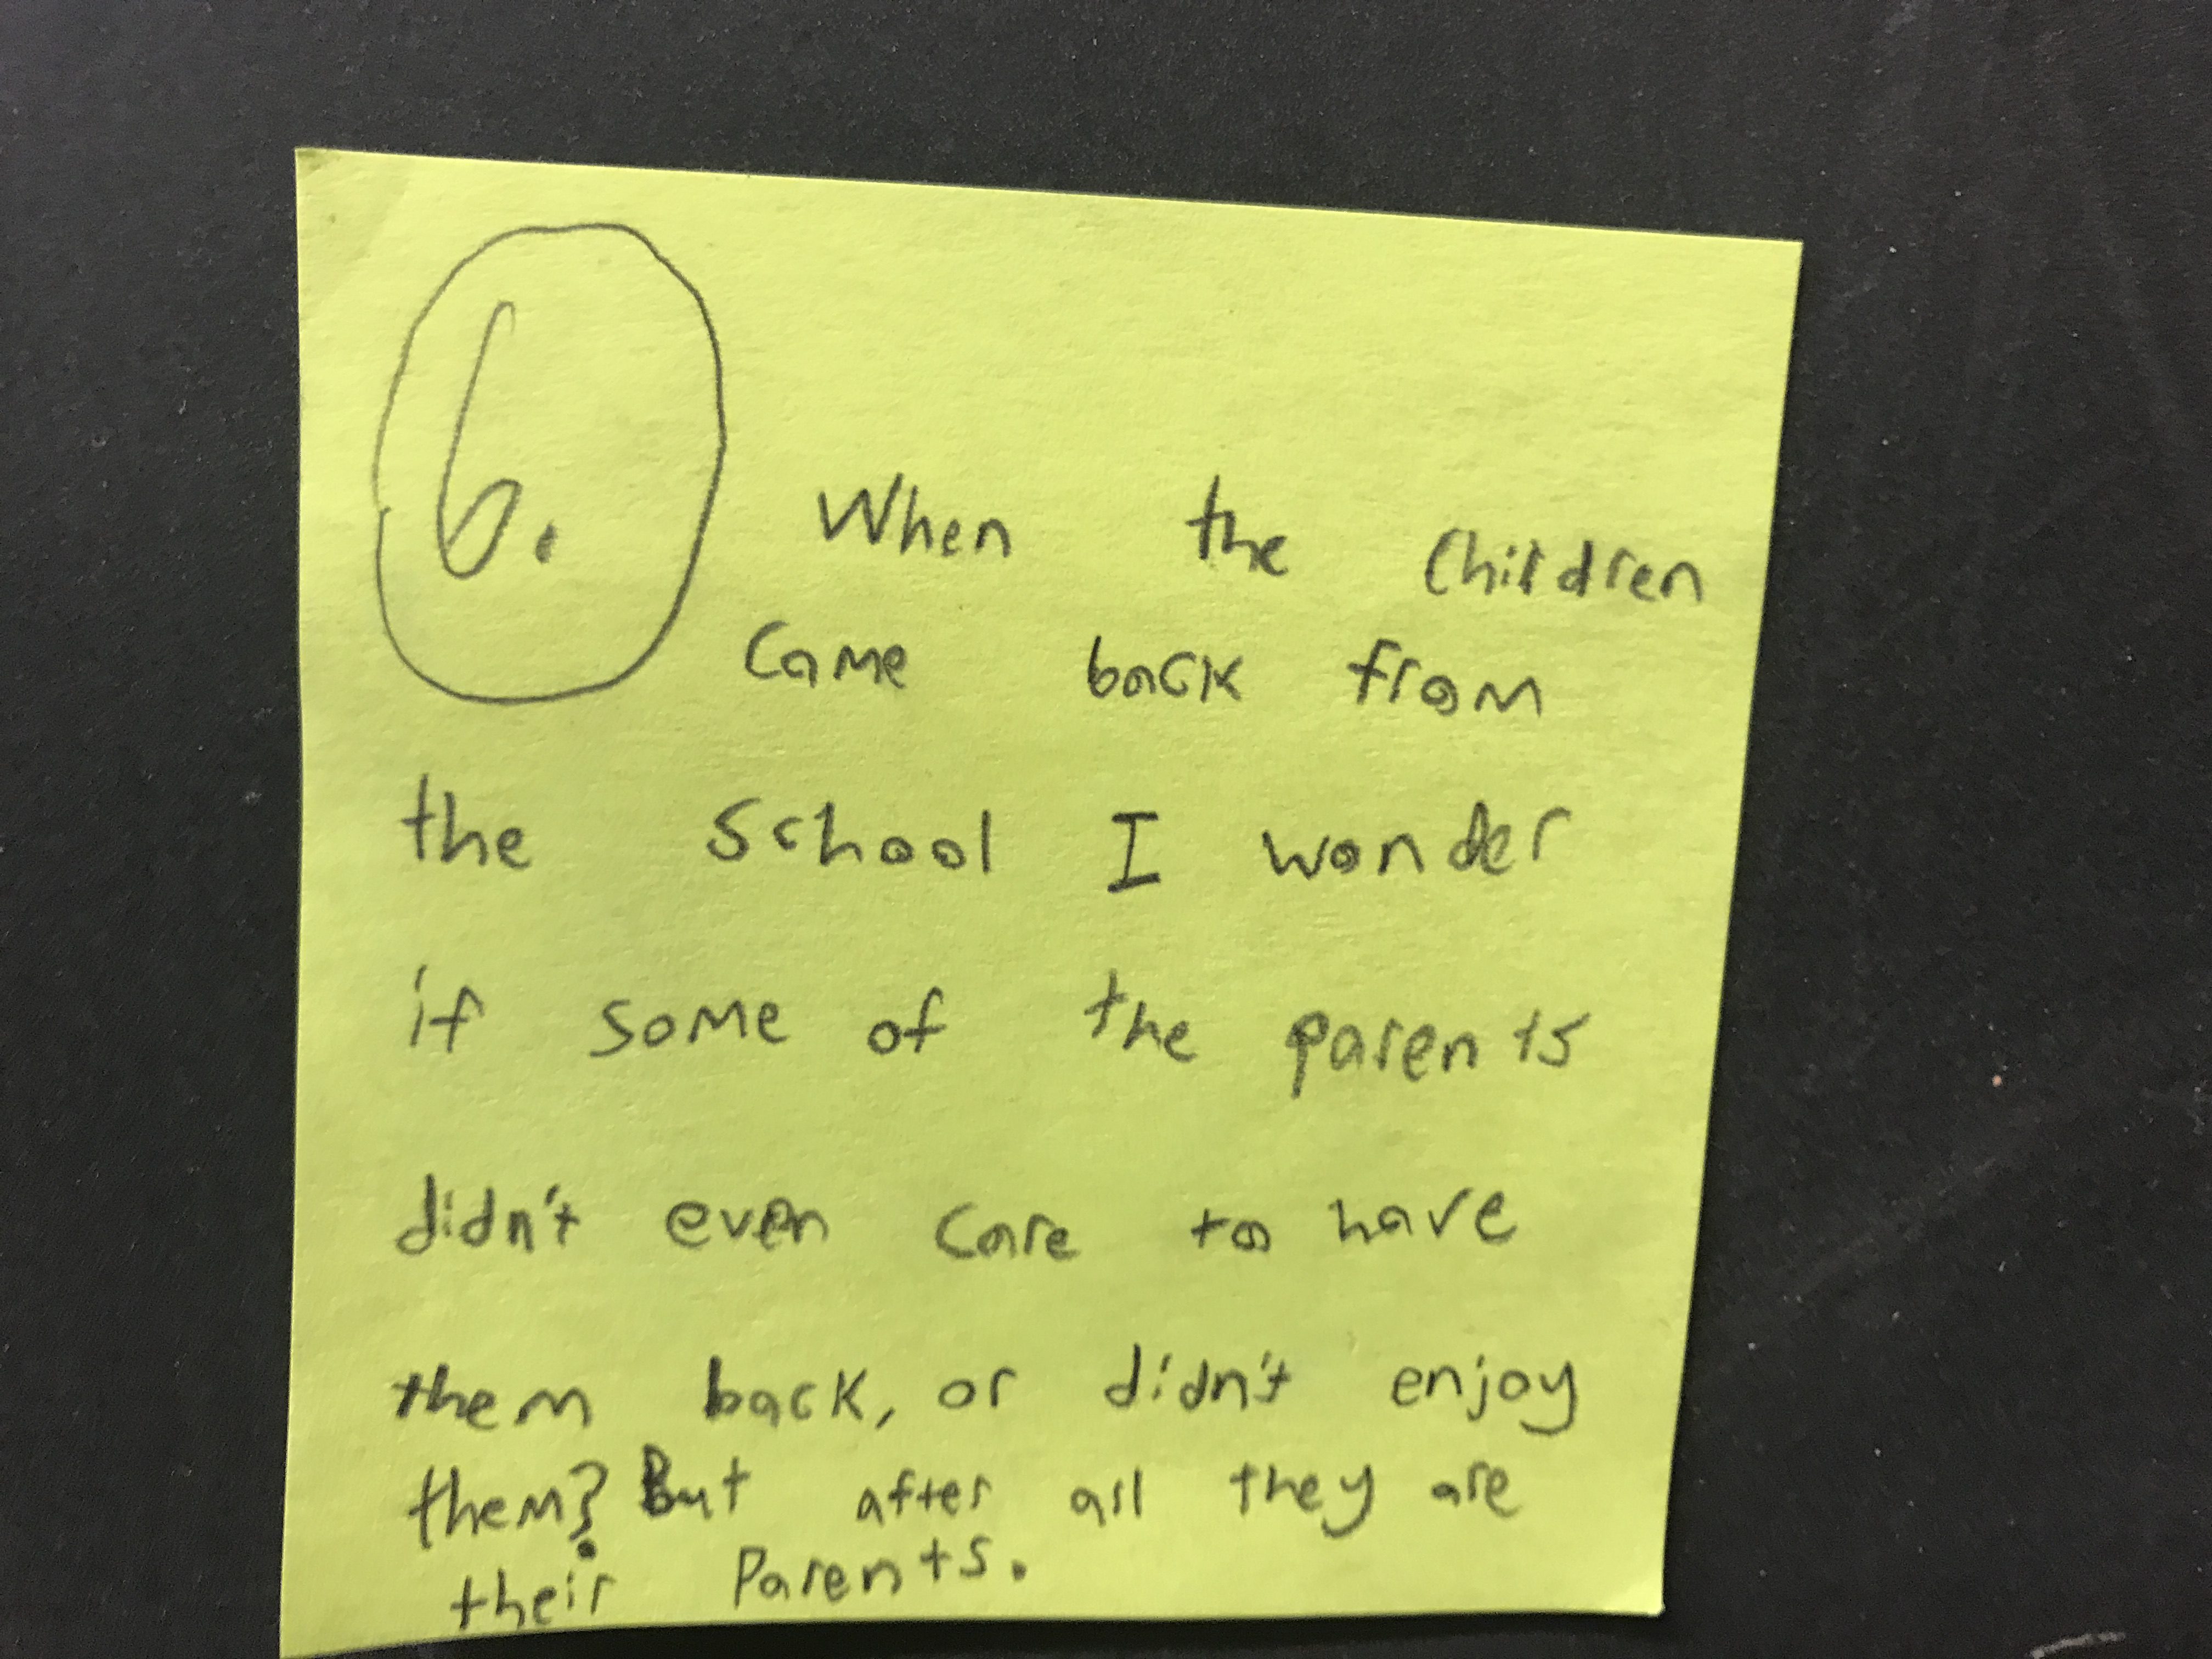 6.
When the Children
Came back from
the school I wonder
if some of the parents
didn't even care to have
them back, or didn't enjoy
them? But after all they are
their Parents.